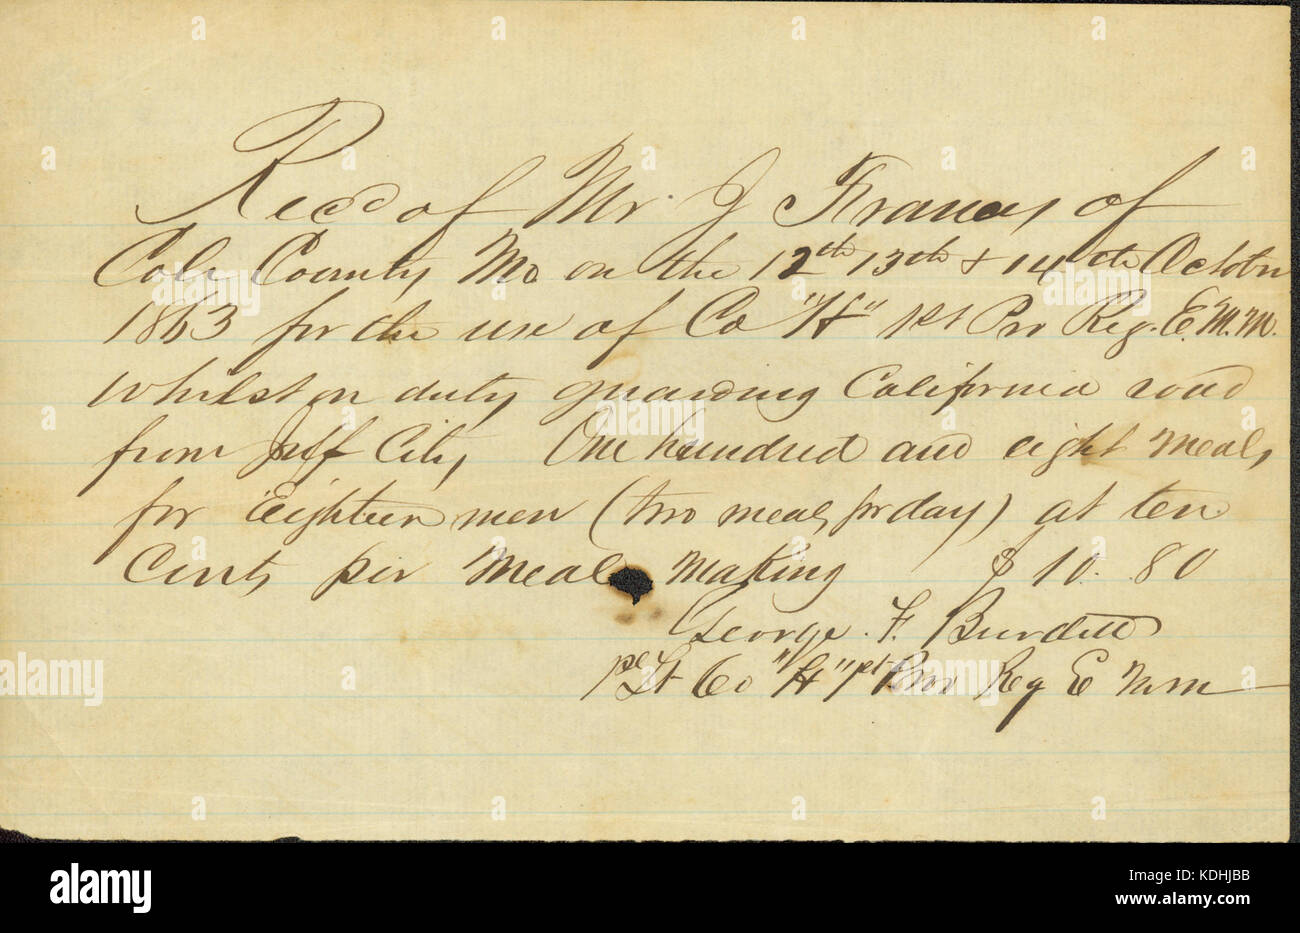 Recd of Mr. J Francis of
Cole County Mo on the 12th 13th & 14th October
1863 for the use of Co "H" 1st Pro Reg. E.M.M.
Whilst on duty guarding California road
from Jeff City One hundred and eight meals
for Eighteen men (two meals per day) at ten
Cents per Meal Making $10.80
George. F. Burdett
1st Lt Co "H" 1st Prov Reg E M M
a
alamy
a
alamy
a
a
alamy
a
alamy
alamy
Image ID: KDHJBB
www.alamy.com